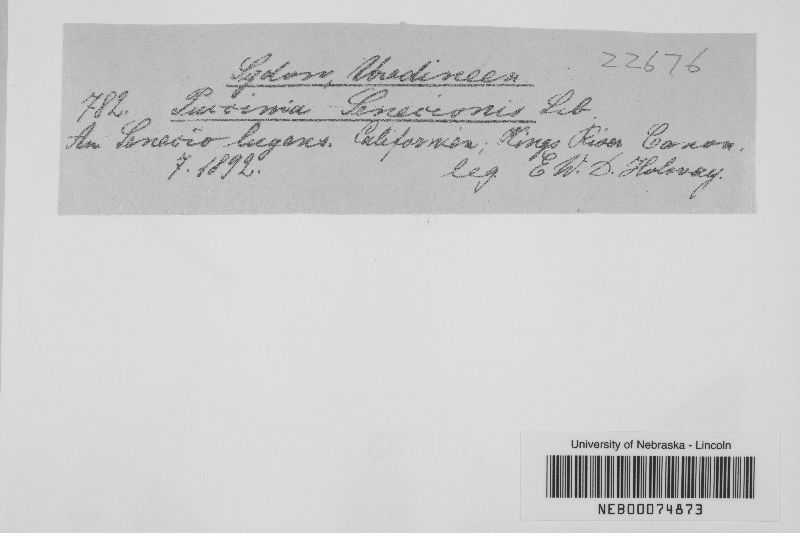 Sydow, Uredineen 22676
782. Puccinia Senecionis Lib.
An Senecio lugens. Californien, Kings River Canon.
7. 1892. leg. E W. D. Holway.
University of Nebraska - Lincoln
NEB00074873